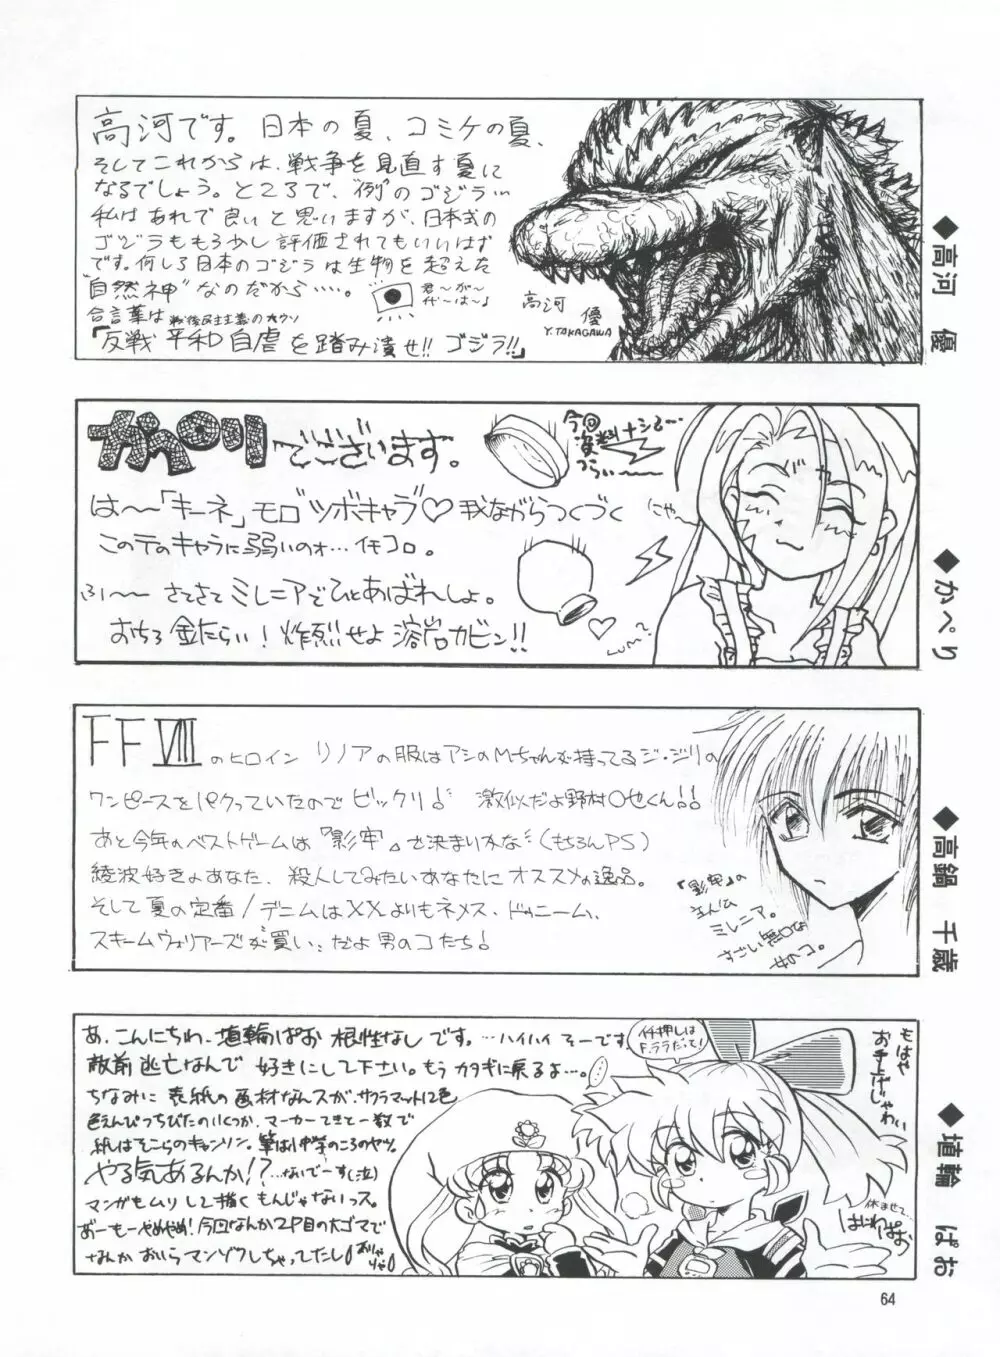 高河です。日本の夏、コミケの夏、
そしてこれからは、戦争を見直す夏に
なるでしょう。ところで、"例"のゴジラ…
私はあれで良いと思いますが、日本式の
ゴジラももう少し評価されてもいいはず
です。何しろ日本のゴジラは生物を超えた
"自然神"なのだから…。
君〜が〜
代〜は〜♪
合言葉は
「反戦平和自虐を踏み潰せ!!ゴジラ!!」
高河 優
Y.TAKAGAWA
◆高河 優
かぺりでございます。
今回
資料ナシで…
つらい〜
は〜「キーネ」モロツボキャラ♡我ながらつくづく
このテのキャラに弱いのォ…イモコロ。
ふい〜 さてさてミレニアでひとあばれしょ。
おちろ金だらい!炸裂せよ溶岩カビン!!
にゃ〜
◆かぺり
FFⅧのヒロイン リノアの服はアシのMちゃんが持ってるジ・ジリの
ワンピースをパクっていたのでビックリ! 激似だよ野村○也くん!!
あと今年のベストゲームは『影牢』で決まりかな…(もちろんPS)
綾波好きのあなた、殺人してみたいあなたにオススメの逸品。
そして夏の定番/デニムはXXよりもネメス、ドゥニーム、
スキームウォリアーズが買い、だよ男のコたち!
『影牢』の
主人公
ミレニア。
すごい無口な
女のコ。
◆高鍋 千歳
あ、こんにちわ、埴輪ぱお 根性なしです。…ハイハイそーです
敵前逃亡なんで 好きにして下さい。もうカタギに戻るよ…。
ちなみに 表紙の画材なんスが、サクラマット12色
色えんぴつちびたのいくつか、マーカーてきとー数で
紙はそこらのキャンソン。筆は中学のころのヤツ。
やる気あるんか!?…ないでーす(泣)
マンガもムリして描くもんじゃないっス。
あーもーやめやめ!今回なんか2P目の大ゴマで
なんかおいらマンゾクしちゃってたし!
イチ押しは
F.ララだって!
もはや
お手上げじゃわい
休ませて…
はにわぱお
◆埴輪 ぱお
64